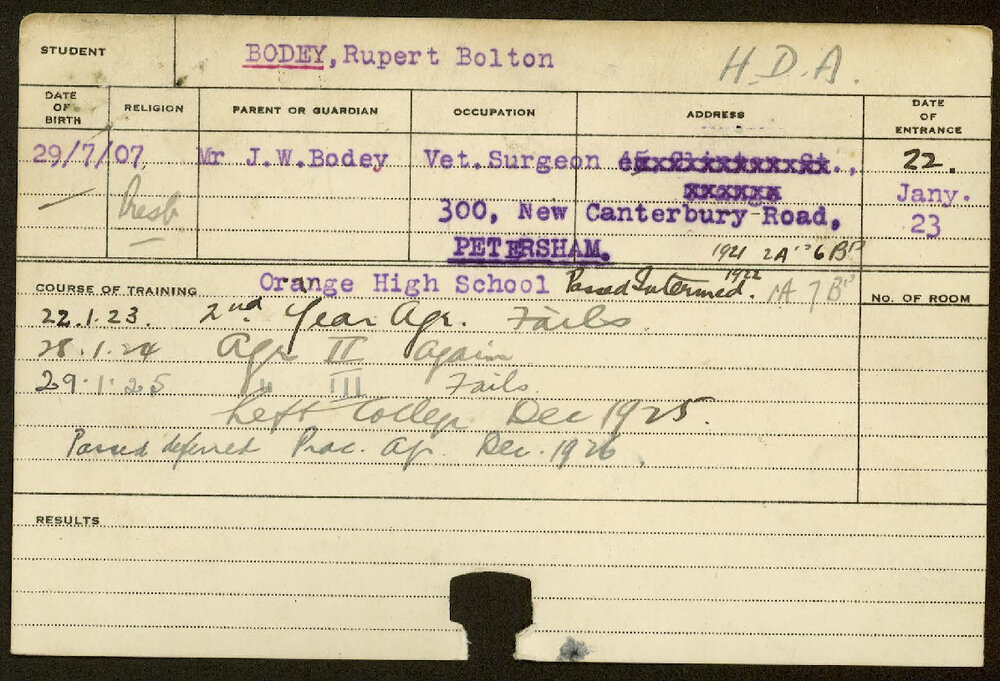 STUDENT BODEY, Rupert Bolton H.D.A.
DATE OF BIRTH RELIGION PARENT OR GUARDIAN OCCUPATION ADDRESS DATE OF ENTRANCE
29/7/07 Mr J.W.Bodey Vet.Surgeon St., 22.
Presb Jany.
300, New Canterbury Road, 23
PETERSHAM. 1921 2A 6B
Orange High School Passed Intermed. 1922 1A 7B
COURSE OF TRAINING No. OF ROOM
22.1.23. 2nd Year Agr. Fails.
28.1.24 Agr II Again
29.1.25 " III Fails.
Left College Dec 1925.
Passed deferred Prac. Agr. Dec. 1926.
RESULTS